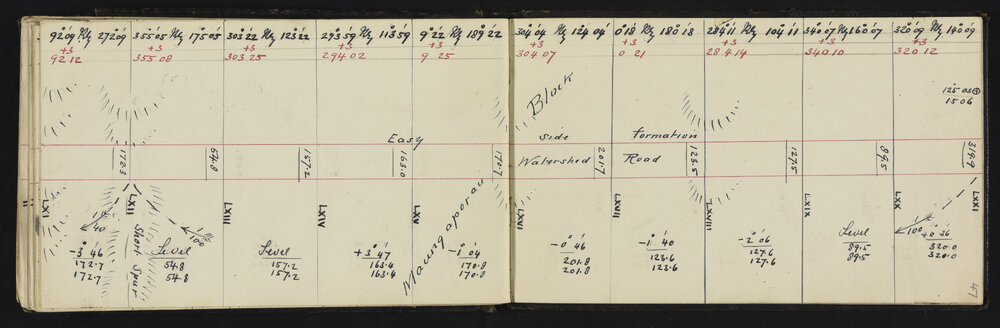 92°09' Mg 272°09'
+3
92 12
355°05' Mg 175°05'
+3
355 08
(5)
303°22' Mg 123°22'
+3
303 25
293°59' Mg 113°59'
+3
294 02
9°22' Mg 189°22'
+3
9 25
304°04' Mg 124°04'
+3
304 07
0°18' Mg 180°18'
+3
0 21
284°11' Mg 104°11'
+3
284 14
340°07' Mg 160°07'
+3
340 10
320°09' Mg 140°09'
+3
320 12
125 05
1506
Block
Easy side formation
172.3
54.8
157.2
163.0
170.7
Watershed
201.7
Road
123.5
127.5
89.5
319.9
LXI
LXII
LXIII
LXIV
LXV
LXVI
LXVII
LXVIII
LXIX
LXX
LXXI
1
40
-3°46'
172.7
172.7
Short Spur
1
100
Level
54.8
54.8
Level
157.2
157.2
+3°47'
163.4
163.4
Maungaporau
-1°04'
170.8
170.8
-0°46'
201.8
201.8
-1°40'
123.6
123.6
-2°06'
127.6
127.6
Level
89.5
89.5
1
100
+0°36'
320.0
320.0
47